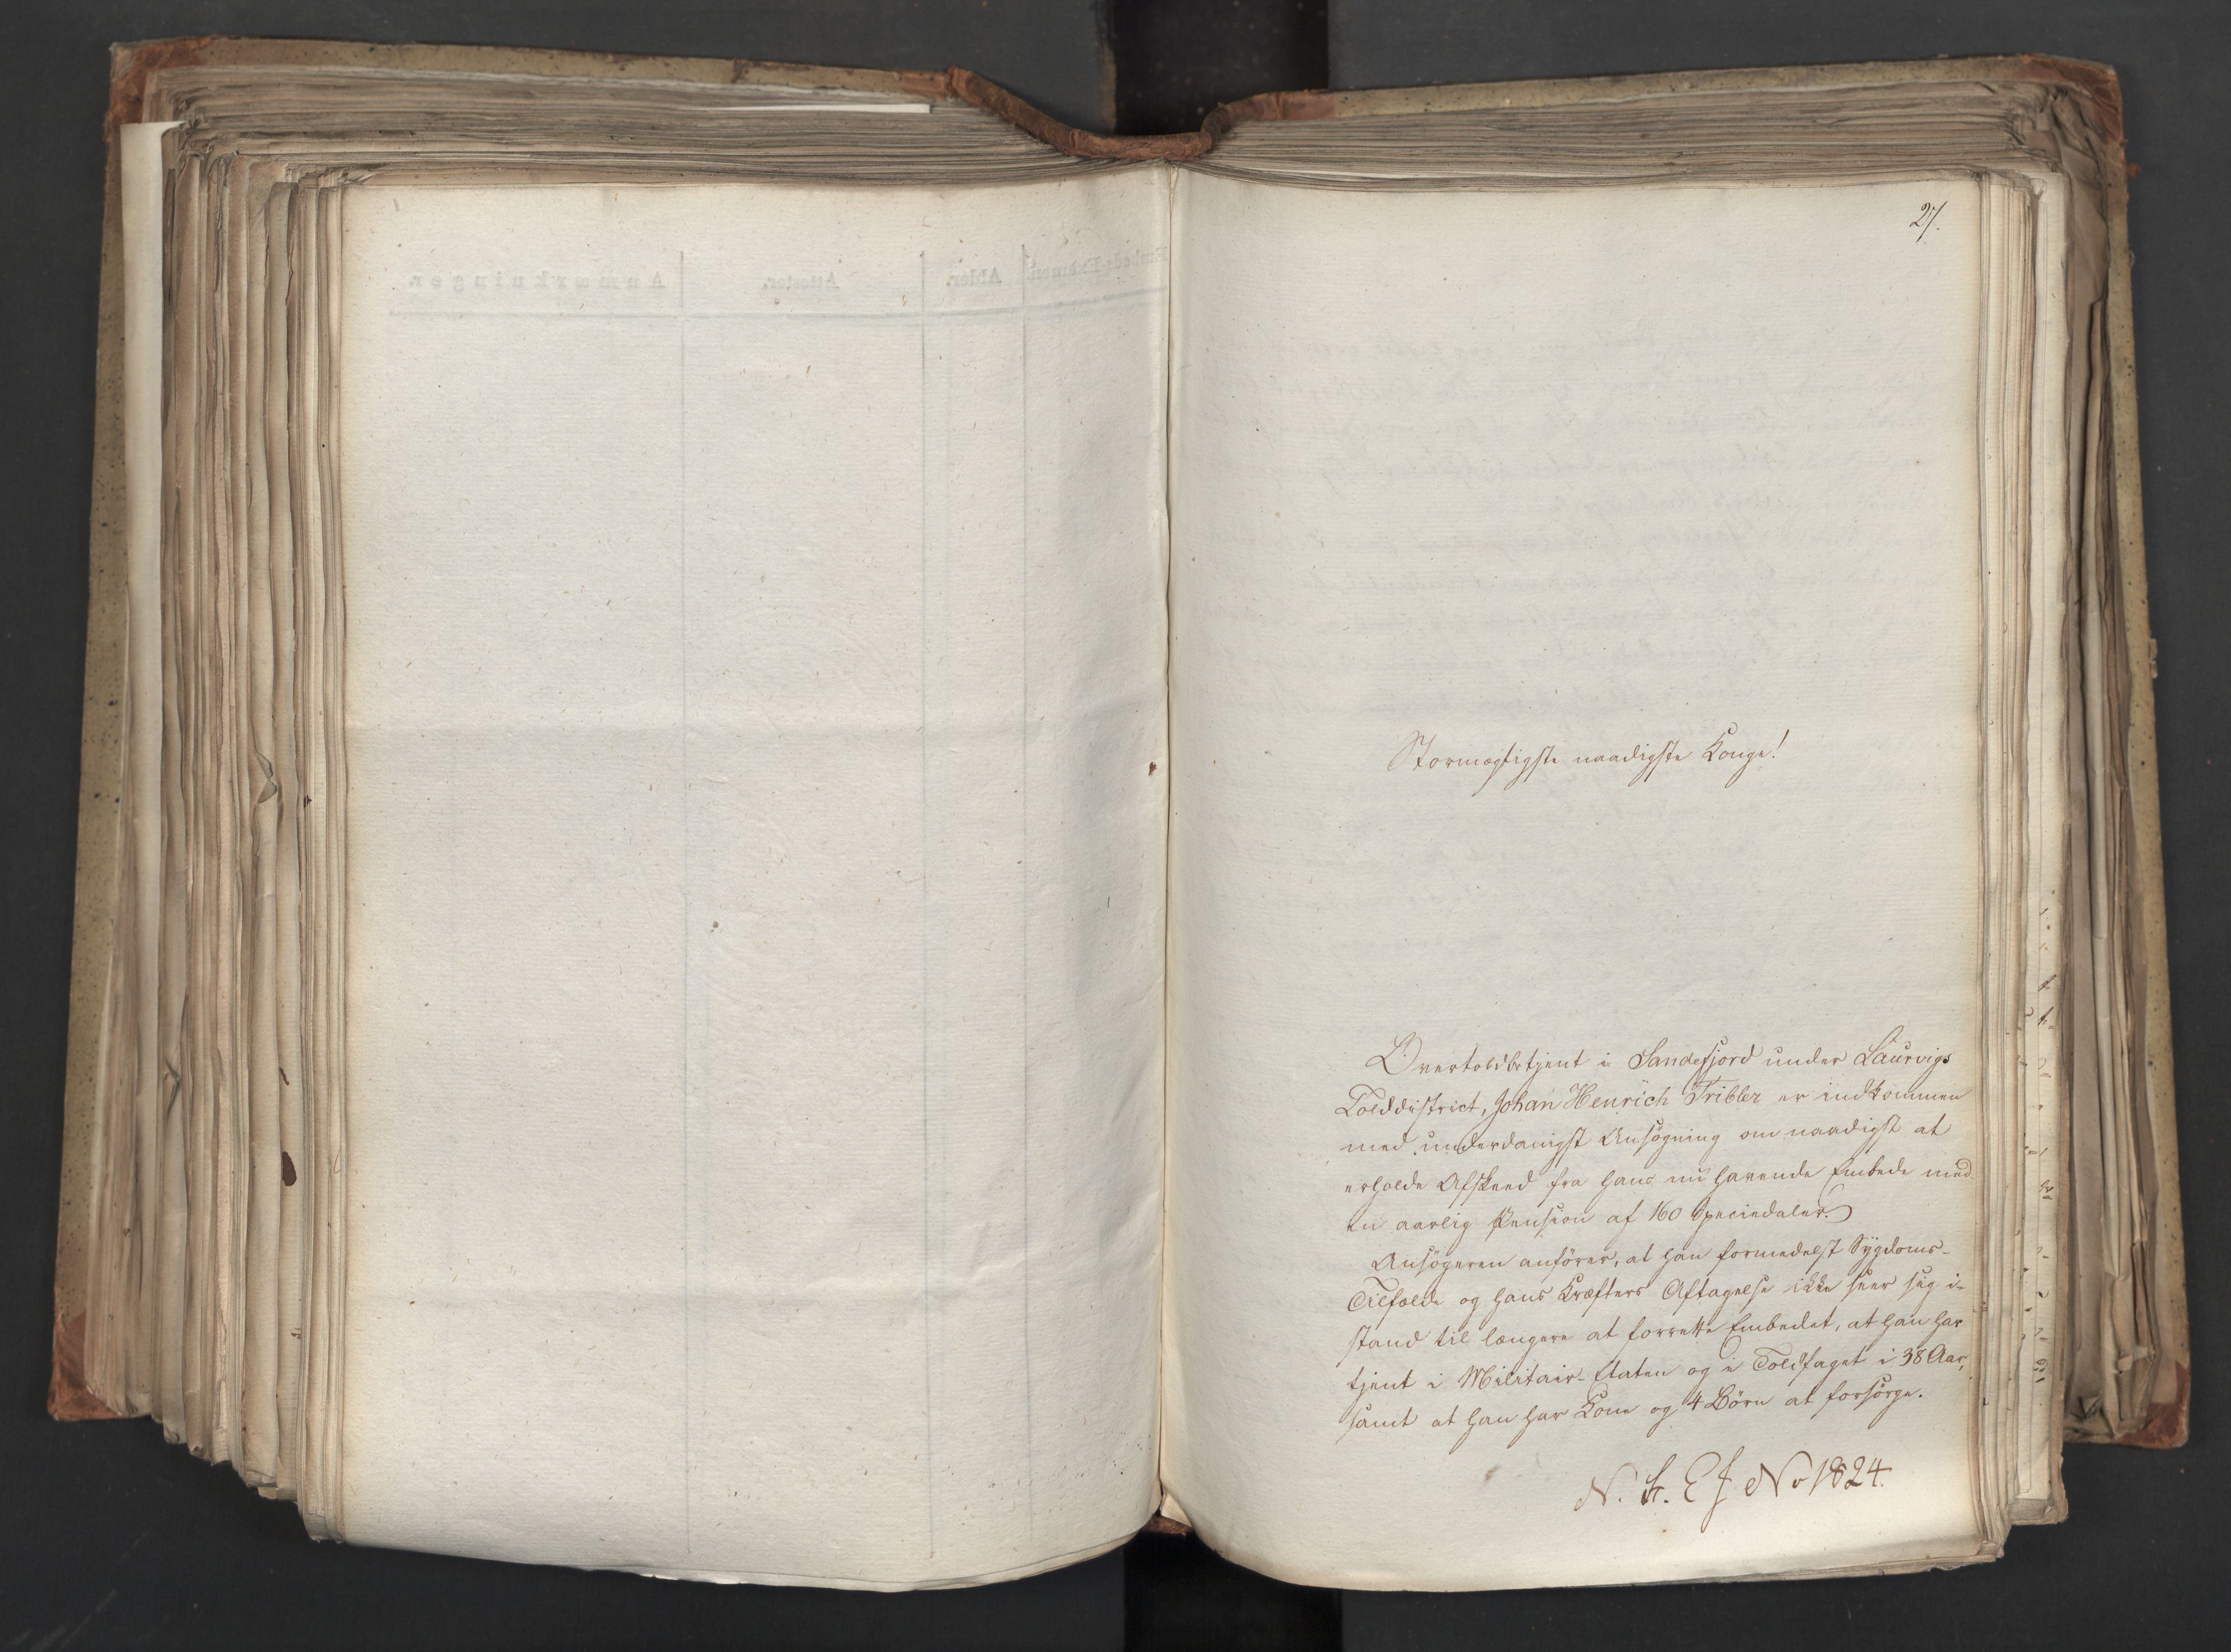 27.
Stormægtigste naadigste Konge!
Overtoldbetjent i Sandefjord under Laurvigs
Tolddistrict, Johan Henrich Tribler er indkommen
med underdanigst Ansögning om naadigst at
erholde Afskeed fra hans nu havende Embede med
en aarlig Pension af 160 Speciedaler.
Ansögeren anförer, at han formedelst Sÿgdoms-
Tilfælde og hans Kræfters Aftagelse ikke seer sig i
stand til længere at forrette Embedet, at han har
tjent i Militair-Etaten og i Toldfaget i 38 Aar,
samt at han har Kone og 4 Börn at forsörge.
N. St. E J No 1824.